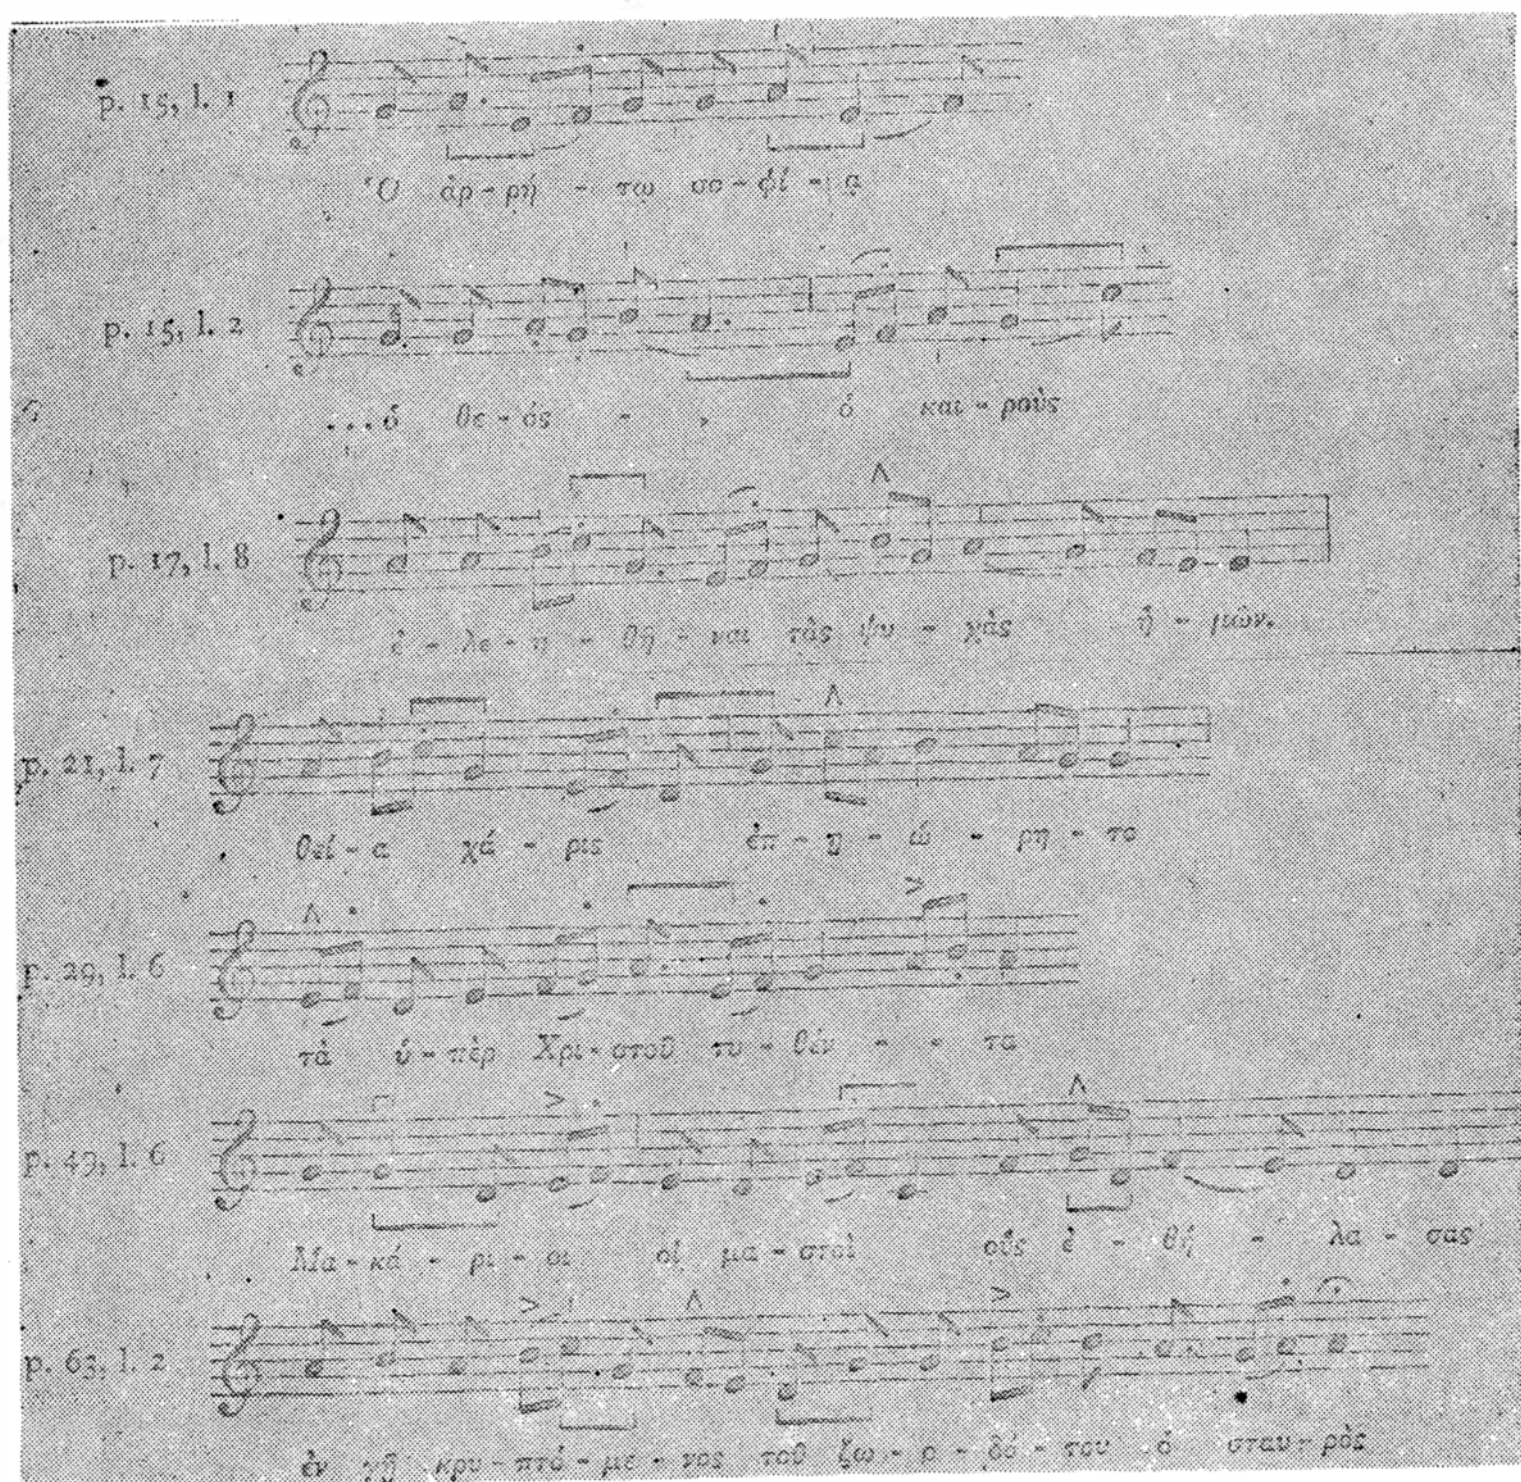 p. 15, l. 1
Ὁ ἀρ-ρή - τῳ σο-φί - ᾳ
p. 15, l. 2
...ὁ θε-ός - , ὁ και-ροὺς
p. 17, l. 8
ἐ - λε - η - θῆ - ναι τὰς ψυ - χὰς ἡ - μῶν.
p. 21, l. 7
θεί-α χά - ρις ἐπ-ῃ-ώ - ρη-το
p. 29, l. 6
τὰ ὑ-πὲρ Χρι-στοῦ τυ-θέν - - τα
p. 49, l. 6
Μα-κά - ρι-οι οἱ μα-στοὶ οὓς ἐ - θή - λα - σας
p. 63, l. 2
ἐν γῇ κρυ-πτό-με-νος τοῦ ζω-ο-δό-του ὁ σταυ-ρὸς